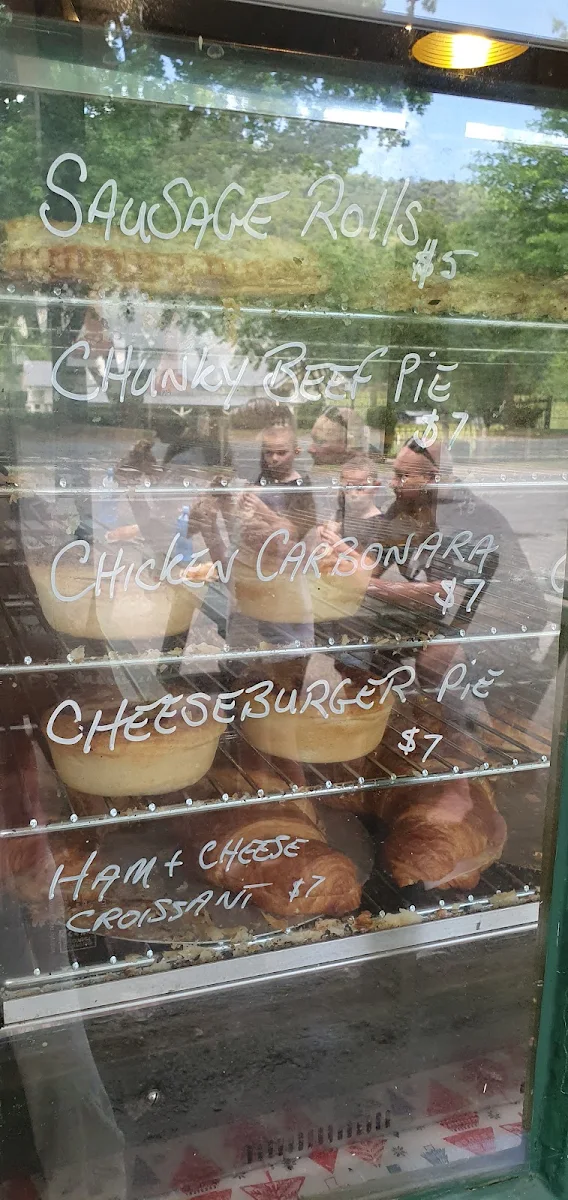 SAUSAGE Rolls
$5
CHUNKY BEEF PiE
$7
CHiCKEN CARBONARA
$7
CHEESEBURGER PiE
$7
HAM + CHEESE
CROISSANT $7